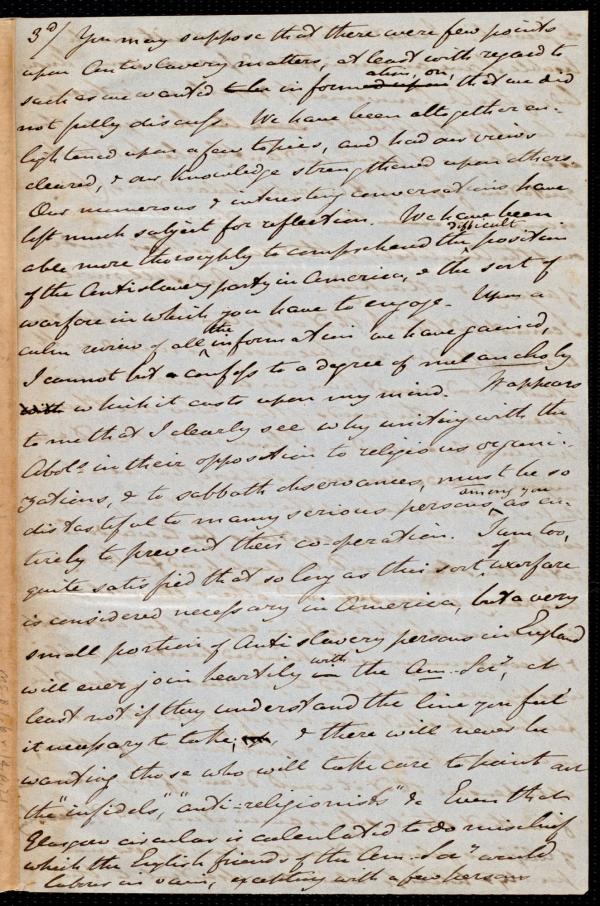 3d/ You may suppose that there were few points
upon Antislavery matters, at least with regard to
such as we wanted information, on, that we did
not fully discuss. We have been altogether en-
lightened upon a few topics, and had our views
cleared, & our knowledge strengthened upon others.
Our numerous & interesting conversations have
left much subject for reflection. We have been
able more thoroughly to comprehend the difficult position
of the Antislavery party in America, & the sort of
warfare in which you have to engage. Upon a
calm review of all the information we have gained,
I cannot but confess to a degree of melancholy
which it casts upon my mind. It appears
to me that I clearly see why uniting with the
Abols in their opposition to religious organi-
zations, & to sabbath observances, must be so
distasteful to many serious persons among you as en-
tirely to prevent their co-operation. I am too,
quite satisfied that so long as this sort of warfare
is considered necessary in America, but a very
small portion of Anti slavery persons in England
will ever join heartily with the Am. Socy, at
least not if they understand the line you feel
it necessary to take, & there will never be
wanting those who will take care to point out
the "infidels," "anti-religionists" &c Even that
Glasgow circular is calculated to do mischief
which the English friends of the Am. Socy would
labour in vain, excepting with a few persons